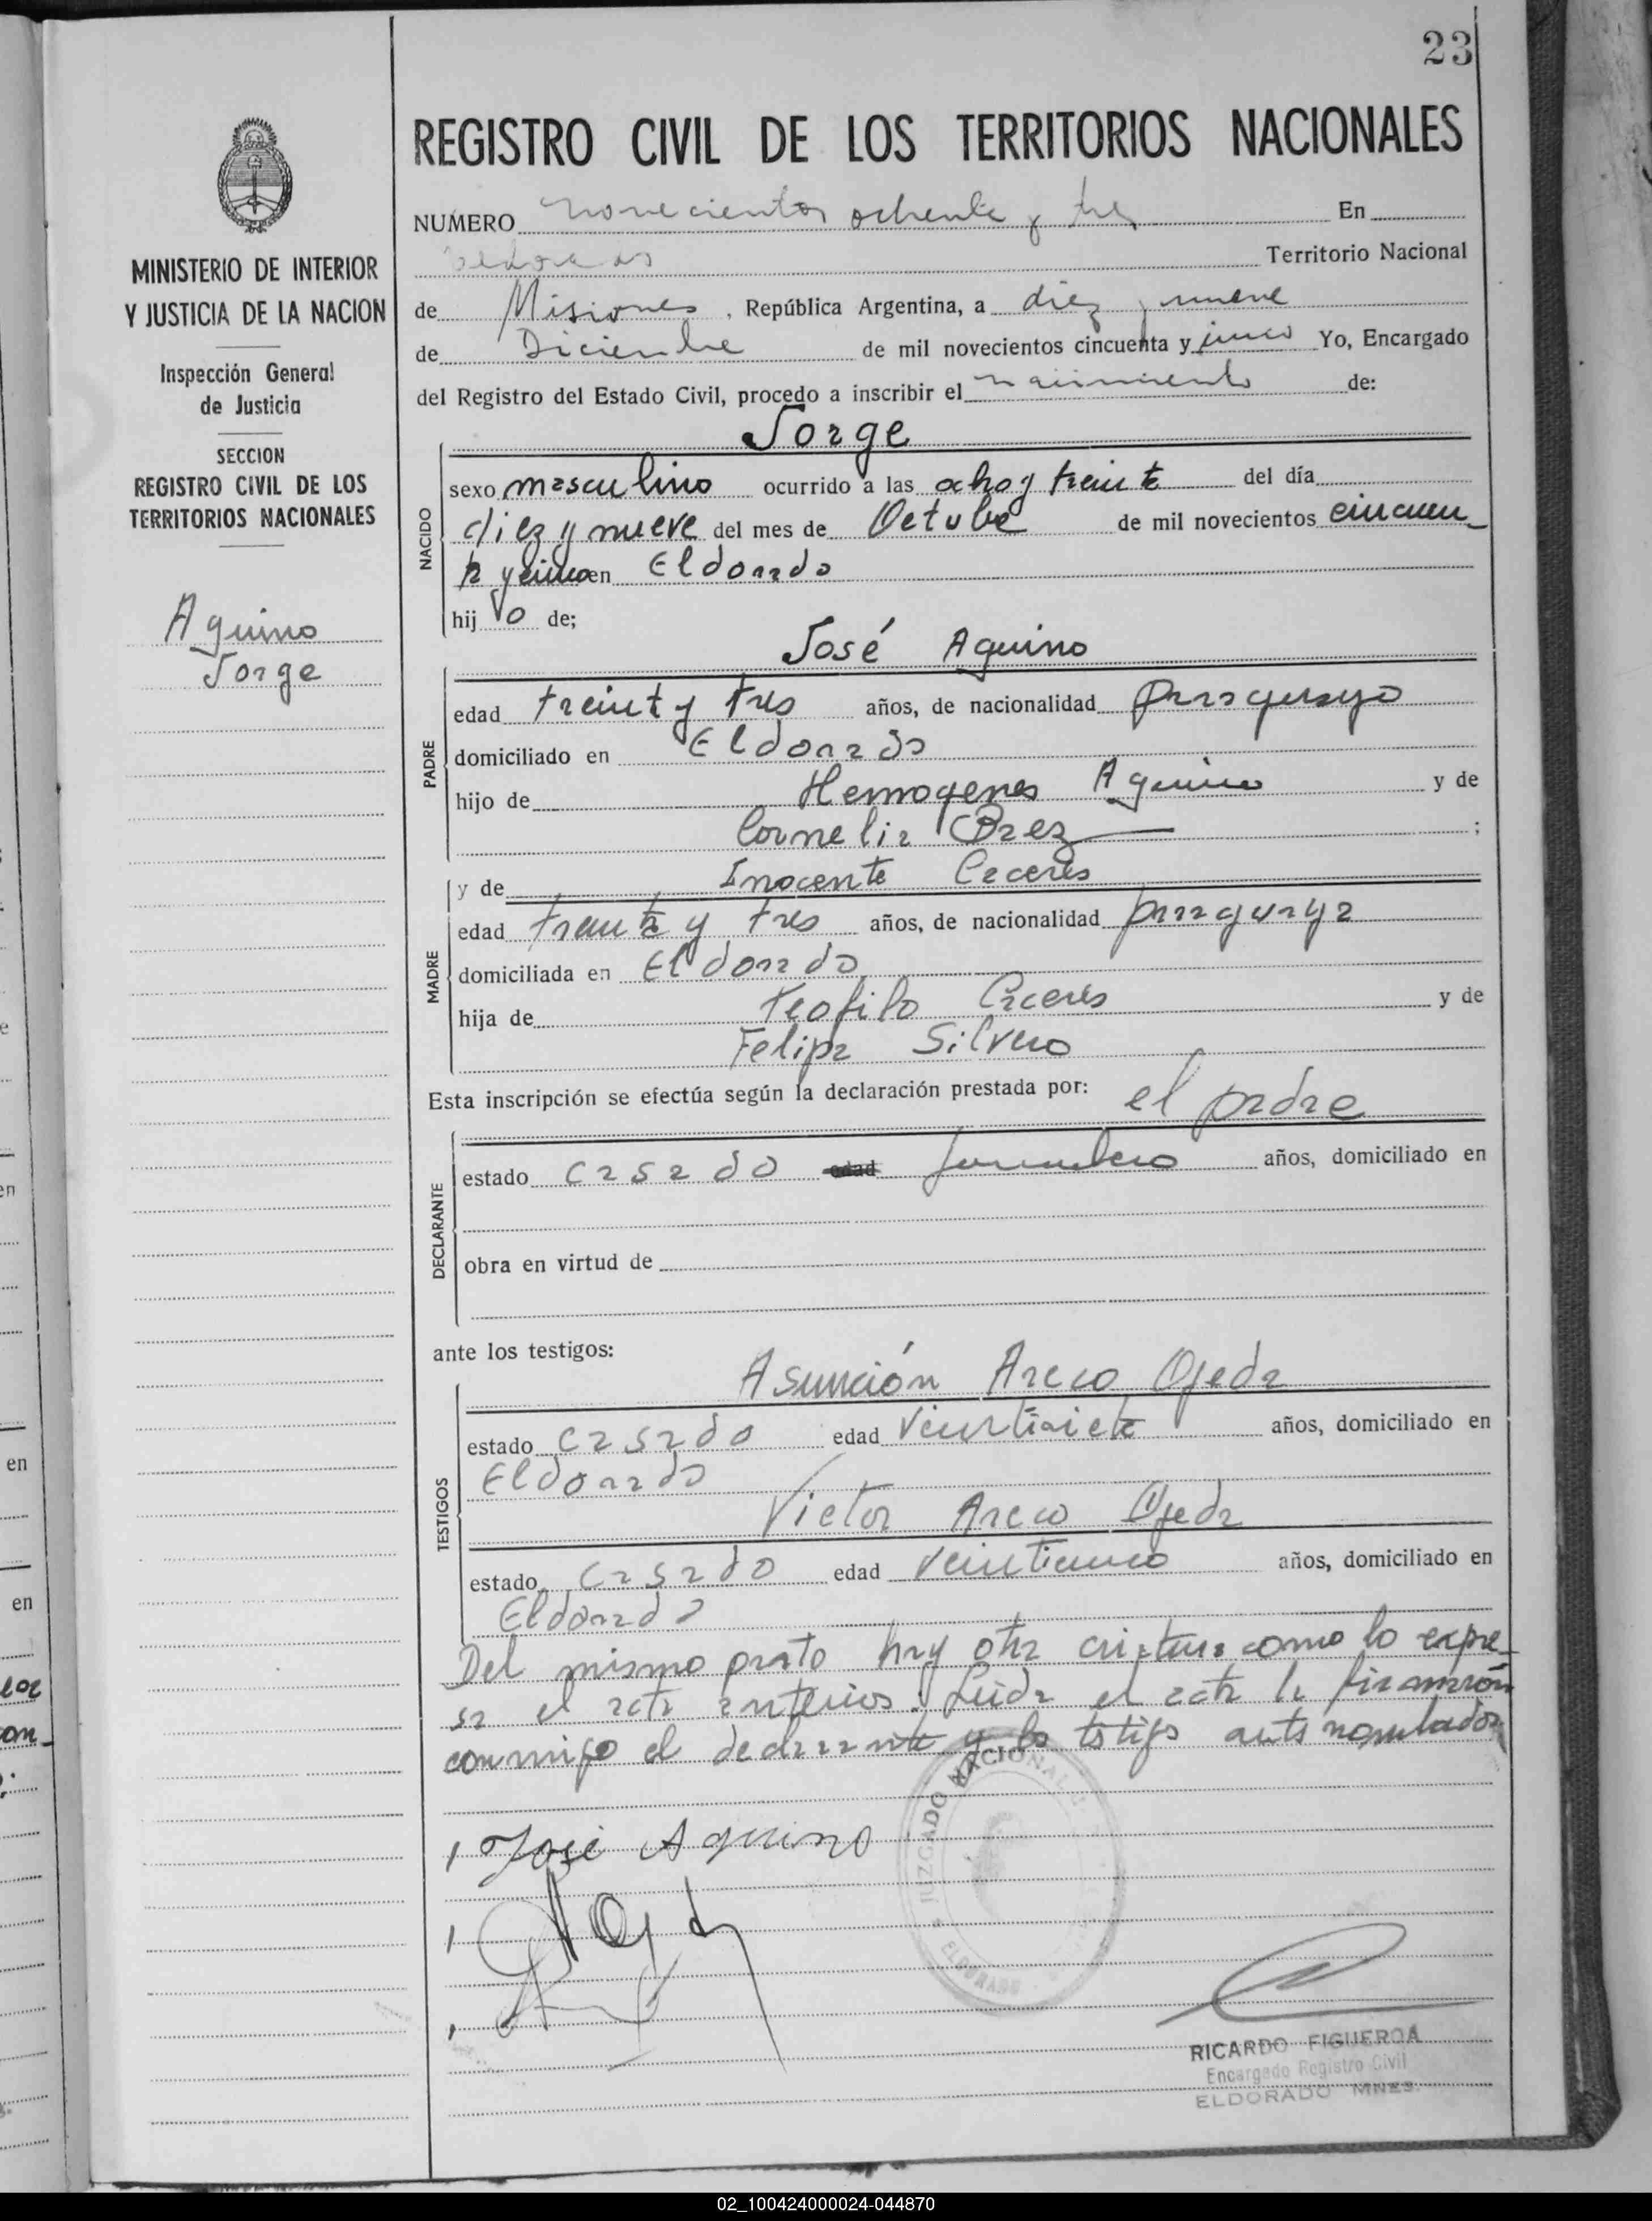 23
REGISTRO CIVIL DE LOS TERRITORIOS NACIONALES
NUMERO novecientos ochenta y tres En
Eldorado Territorio Nacional
de Misiones, República Argentina, a diez y nueve
de Diciembre de mil novecientos cincuenta y cinco Yo, Encargado
del Registro del Estado Civil, procedo a inscribir el nacimiento de:
Jorge
NACIDO
sexo masculino ocurrido a las ocho y treinta del día
diez y nueve del mes de Octubre de mil novecientos cincuen
ta y cinco en Eldorado
hijo de;
José Aquino
PADRE
edad treinta y tres años, de nacionalidad paraguayo
domiciliado en Eldorado
hijo de Hermogenes Aquino y de
Cornelia Baez ;
y de Inocente Caceres
MADRE
edad treinta y tres años, de nacionalidad paraguaya
domiciliada en Eldorado
hija de Teofilo Caceres y de
Felipa Silvero
Esta inscripción se efectúa según la declaración prestada por: el padre
DECLARANTE
estado casado edad jornalero años, domiciliado en
obra en virtud de
ante los testigos:
Asunción Areco Ojeda
TESTIGOS
estado casado edad Veintisiete años, domiciliado en
Eldorado
Victor Areco Ojeda
estado casado edad veinticinco años, domiciliado en
Eldorado
Del mismo parto hay otra criatura como lo expre
sa el acta anterior. Leida el acta la firmaron
conmigo el declarante y los testigos antes nombrados
José Aquino
JUZGADO NACIONAL
ELDORADO
RICARDO FIGUEROA
Encargado Registro Civil
ELDORADO MNES.
MINISTERIO DE INTERIOR
Y JUSTICIA DE LA NACION
Inspección General
de Justicia
SECCION
REGISTRO CIVIL DE LOS
TERRITORIOS NACIONALES
Aquino
Jorge
02_100424000024-044870